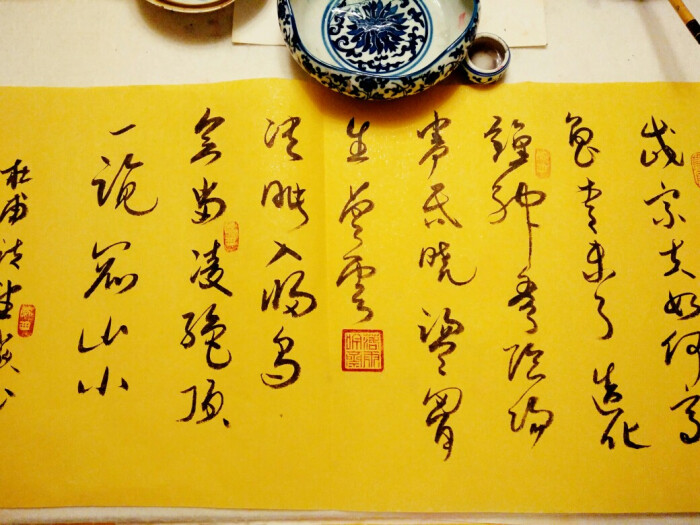 岱宗夫如何齊
魯青未了造化
鍾神秀陰陽
割昏曉盪胸
生曾雲
決眦入歸鳥
會當凌絕頂
一覽眾山小
杜甫詩望嶽